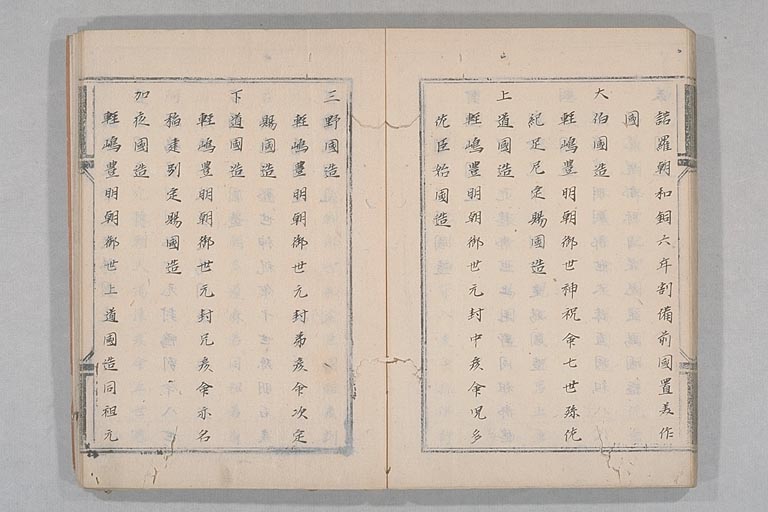 諾羅朝和銅六年割備前國置美作
國
大伯國造
軽嶋豊明朝御世神祝命七世孫佐
紀足尼定賜國造
上道國造
軽嶋豊明朝御世元封中彦命児多
佐臣始國造
三野國造
軽嶋豊明朝御世元封弟彦命次定
賜國造
下道國造
軽嶋豊明朝御世元封兄彦命亦名
稲建別定賜國造
加夜國造
軽嶋豊明朝御世上道國造同祖元